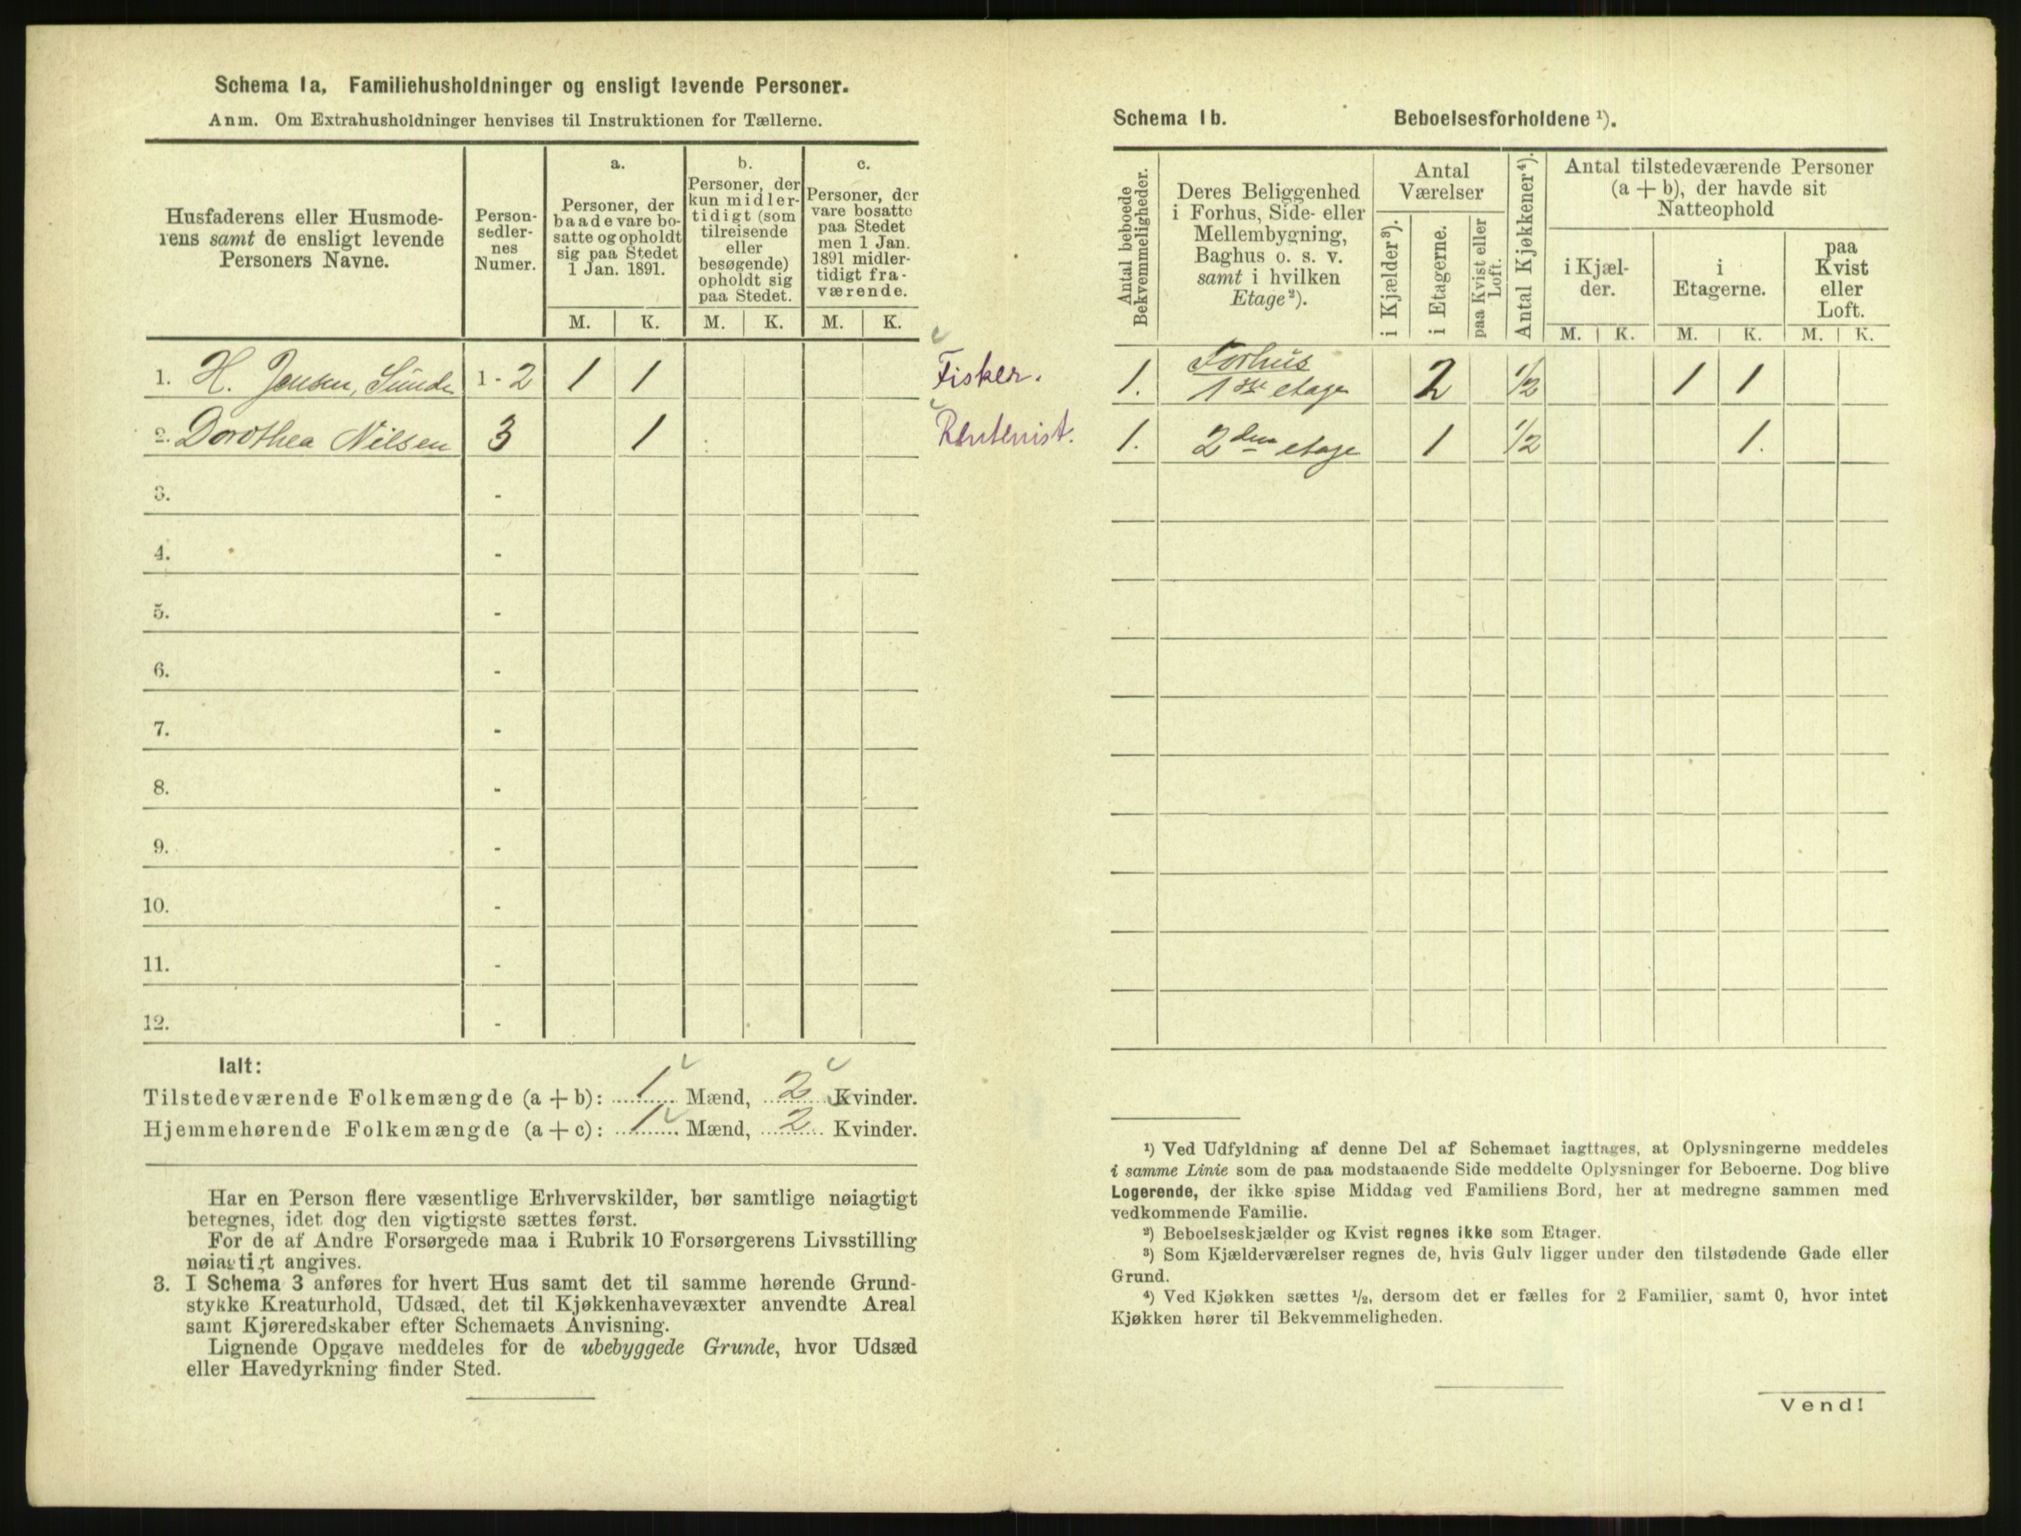 Schema 1a, Familiehusholdninger og ensligt levende Personer.
Anm. Om Extrahusholdninger henvises til Instruktionen for Tællerne.
Husfaderens eller Husmode-
rens samt de ensligt levende
Personers Navne.
Person-
sedler-
nes
Numer.
a.
Personer, der
baade vare bo-
satte og opholdt
sig paa Stedet
1 Jan. 1891.
b.
Personer, der
kun midler-
tidigt (som
tilreisende
eller
besøgende)
opholdt sig
paa Stedet.
c.
Personer, der
vare bosatte
paa Stedet
men 1 Jan.
1891 midler-
tidigt fra-
værende.
M. K. M. K. M. K.
1. H. Jensen, Sunde 1 - 2 1 1 Fisker.
2. Dorothea Nilsen 3 1 Rentenist.
3. -
4. -
5. -
6. -
7. -
8. -
9. -
10. -
11. -
12. -
Ialt:
Tilstedeværende Folkemængde (a + b): 1 Mænd, 2 Kvinder.
Hjemmehørende Folkemængde (a + c): 1 Mænd, 2 Kvinder.
Har en Person flere væsentlige Erhvervskilder, bør samtlige nøiagtigt
betegnes, idet dog den vigtigste sættes først.
For de af Andre Forsørgede maa i Rubrik 10 Forsørgerens Livsstilling
nøiagtigt angives.
3. I Schema 3 anføres for hvert Hus samt det til samme hørende Grund-
stykke Kreaturhold, Udsæd, det til Kjøkkenhavevæxter anvendte Areal
samt Kjøreredskaber efter Schemaets Anvisning.
Lignende Opgave meddeles for de ubebyggede Grunde, hvor Udsæd
eller Havedyrkning finder Sted.
Schema 1b. Beboelsesforholdene ¹).
Antal beboede
Bekvemmeligheder.
Deres Beliggenhed
i Forhus, Side- eller
Mellembygning,
Baghus o. s. v.
samt i hvilken
Etage²).
Antal
Værelser
i Kjælder³).
i Etagerne.
paa Kvist eller
Loft.
Antal Kjøkkener⁴).
Antal tilstedeværende Personer
(a + b), der havde sit
Natteophold
i Kjæl-
der.
i
Etagerne.
paa
Kvist
eller
Loft.
M. K. M. K. M. K.
1. Forhus
1ste etage 2 1/2 1 1
1. 2den etage 1 1/2 1.
¹) Ved Udfyldning af denne Del af Schemaet iagttages, at Oplysningerne meddeles
i samme Linie som de paa modstaaende Side meddelte Oplysninger for Beboerne. Dog blive
Logerende, der ikke spise Middag ved Familiens Bord, her at medregne sammen med
vedkommende Familie.
²) Beboelseskjælder og Kvist regnes ikke som Etager.
³) Som Kjælderværelser regnes de, hvis Gulv ligger under den tilstødende Gade eller
Grund.
⁴) Ved Kjøkken sættes ½, dersom det er fælles for 2 Familier, samt 0, hvor intet
Kjøkken hører til Bekvemmeligheden.
Vend!